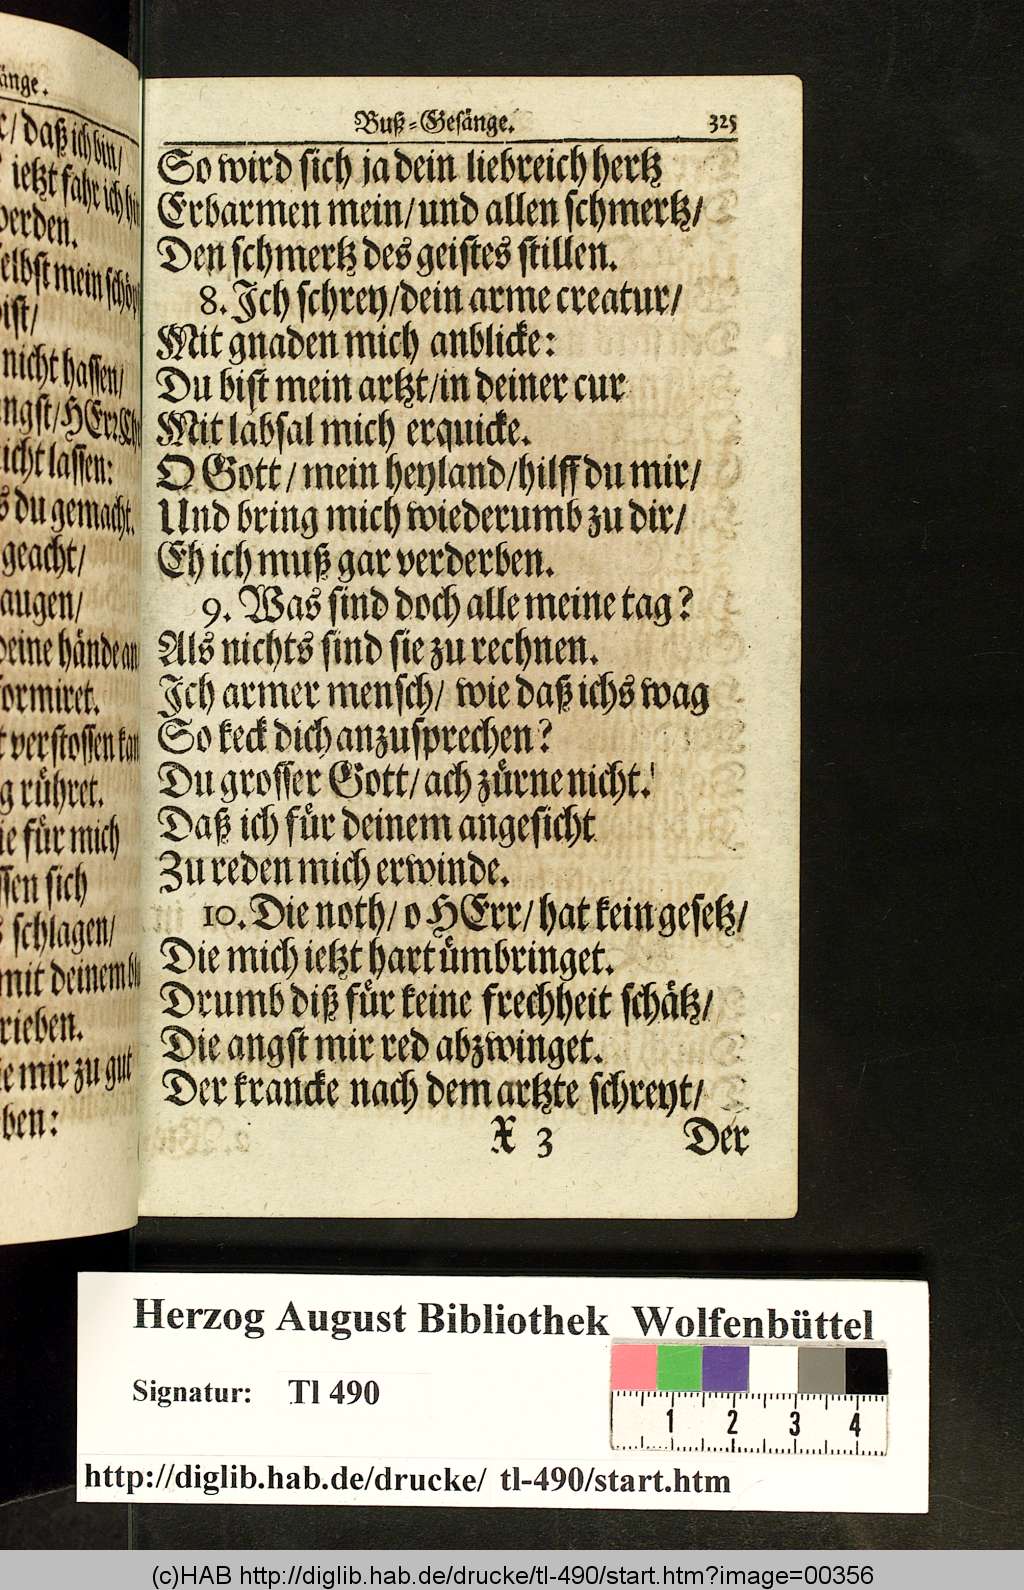 änge.
daß ich bin/
ietzt fahr ich
werden.
selbst mein
bist/
nicht hassen/
angst/HErr
nicht lassen:
du gemacht.
geacht/
augen/
deine hände an
formiret.
verstossen kan
rühret.
für mich
sich
schlagen/
mit deinem
rieben.
mir zu gut
ben:
Buß-Gesänge. 325
So wird sich ja dein liebreich hertz
Erbarmen mein/und allen schmertz/
Den schmertz des geistes stillen.
8. Ich schrey/dein arme creatur/
Mit gnaden mich anblicke:
Du bist mein artzt/in deiner cur
Mit labsal mich erquicke.
O Gott/mein heyland/hilff du mir/
Und bring mich wiederumb zu dir/
Eh ich muß gar verderben.
9. Was sind doch alle meine tag?
Als nichts sind sie zu rechnen.
Ich armer mensch/ wie daß ichs wag
So keck dich anzusprechen?
Du grosser Gott/ach zürne nicht!
Daß ich für deinem angesicht
Zu reden mich erwinde.
10. Die noth/o HErr/hat kein gesetz/
Die mich ietzt hart ümbringet.
Drumb diß für keine frechheit schätz/
Die angst mir red abzwinget.
Der krancke nach dem artzte schreyt/
X 3 Der
Herzog August Bibliothek Wolfenbüttel
Signatur: Tl 490
1 2 3 4
http://diglib.hab.de/drucke/ tl-490/start.htm
(c)HAB http://diglib.hab.de/drucke/tl-490/start.htm?image=00356